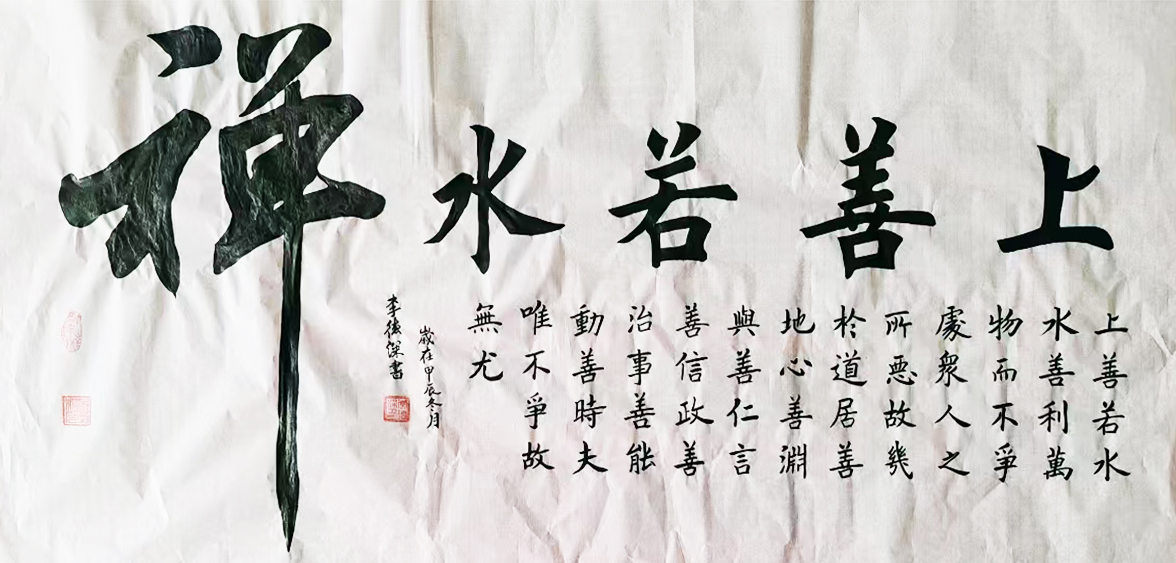 上善若水
禅
上善若水
水善利萬
物而不爭
處衆人之
所悪故幾
於道居善
地心善淵
與善仁言
善信政善
治事善能
動善時夫
唯不爭故
無尤
歲在甲辰冬月
李德傑書